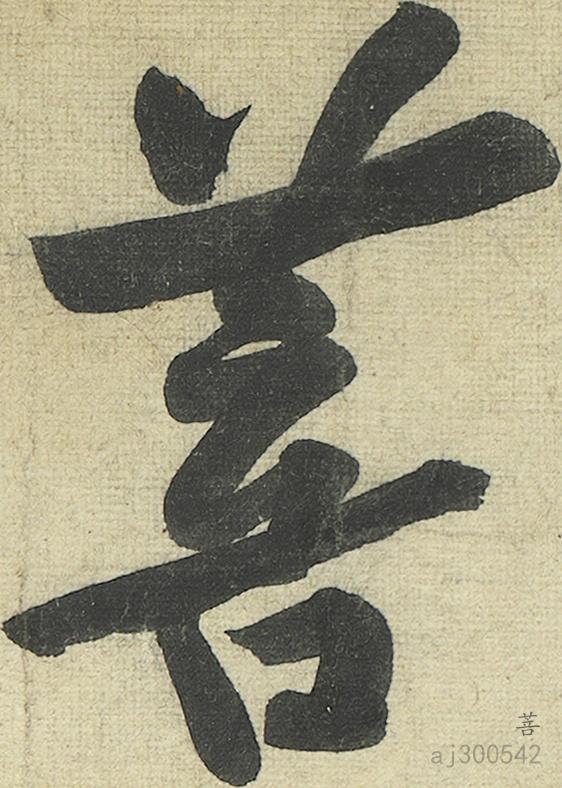 菩
菩
aj300542